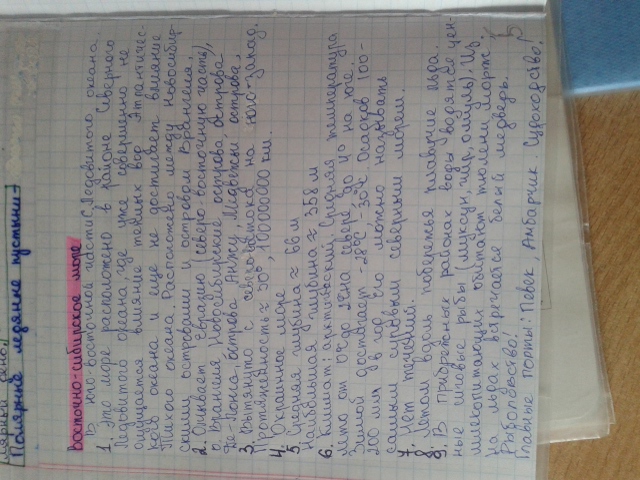 Полярные ледяные пустыни
Восточно-сибирское море
В юго-восточной части С. Ледовитого океана.
1. Это море расположено в районе Северного
Ледовитого океана, где уже совершенно не
ощущается влияние теплых вод Атлантичес-
кого океана и еще не достигает влияние
Тихого океана. Расположено между Новосибир-
скими островами и островом Врангеля.
2. Омывает Евразию (северо-восточную часть),
о. Врангеля, Новосибирские острова, острова
Де-Лонга, острова Анжу, Медвежьи острова.
3. Вытянуто с северо-востока на юго-запад.
Протяженность ≈ 30°, 100000000 км.
4. Окраинное море
5. Средняя глубина ≈ 66 м
Наибольшая глубина ≈ 358 м
6. Климат: арктический. Средняя температура
лето от 0°C до 2° на севере до 4° на юге.
Зимой достигает -28°C -30°C. Осадков 100-
200 мм в год. Его можно называть
самым суровым северным морем.
7. Нет течений.
8. Летом вдоль побережья плавучие льда.
9. В прибрежных районах воды водятся цен-
ные сиговые рыбы (муксун, чир, омуль). Из
млекопитающих обитают тюлени, морж.
На льдах встречается белый медведь.
Рыболовство!
Главные порты: Певек, Амбарчик. Судоходство!